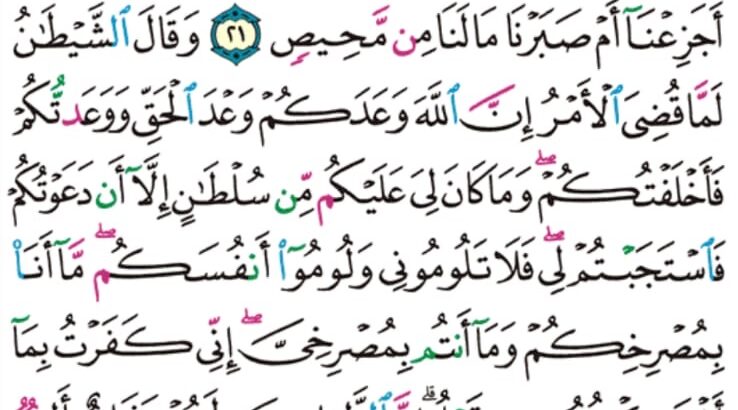 أَجَزِعْنَآ أَمْ صَبَرْنَا مَا لَنَا مِن مَّحِيصٍ ٢١ وَقَالَ ٱلشَّيْطَٰنُ
لَمَّا قُضِىَ ٱلْأَمْرُ إِنَّ ٱللَّهَ وَعَدَكُمْ وَعْدَ ٱلْحَقِّ وَوَعَدتُّكُمْ
فَأَخْلَفْتُكُمْ ۖ وَمَا كَانَ لِىَ عَلَيْكُم مِّن سُلْطَٰنٍ إِلَّآ أَن دَعَوْتُكُمْ
فَٱسْتَجَبْتُمْ لِى ۖ فَلَا تَلُومُونِى وَلُومُوٓا۟ أَنفُسَكُم ۖ مَّآ أَنَا۠
بِمُصْرِخِكُمْ وَمَآ أَنتُم بِمُصْرِخِىَّ ۖ إِنِّى كَفَرْتُ بِمَآ